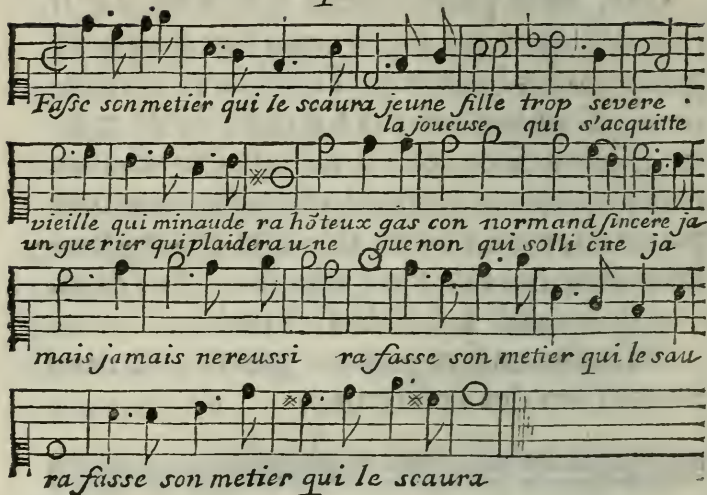 Fasse son metier qui le scaura jeune fille trop severe
la joueuse qui s'acquitte
vieille qui minaude ra hõteux gas con normand sincere ja
un gue rier qui plaidera u ne guenon qui solli cite ja
mais jamais ne reussi ra fasse son metier qui le sau
ra fasse son metier qui le scaura